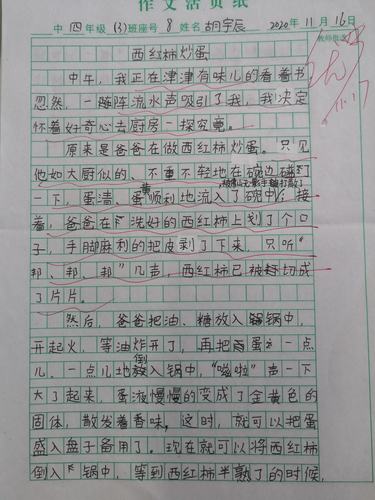 作文活页纸
中四年级(3)班座号8姓名胡宇辰 2020年11月16日
教师批改
西红柿炒蛋
中午，我正在津津有味儿的看着书
忽然，一阵阵流水声吸引了我，我决定
怀着好奇心去厨房一探究竟。
原来是爸爸在做西红柿炒蛋。只见
他如大厨似的、不重不轻地在碗边磕了
一下，蛋清、蛋黄顺利地流入了碗中；接
着，爸爸在洗好的西红柿上划了个口
子，手脚麻利的把皮剥了下来，只听"
邦、邦、邦"几声，西红柿已被切成
了片片。
然后，爸爸把油、糖放入锅中，
开起火，等油炸开了，再把蛋一点
儿、一点儿地倒入锅中，"嗞啦"声一下
大了起来，蛋液慢慢的变成了金黄色的
固体，散发着香味。这时，就可以把蛋
盛入盘子备用了。现在就可以将西红柿
倒入锅中，等到西红柿半熟了的时候，